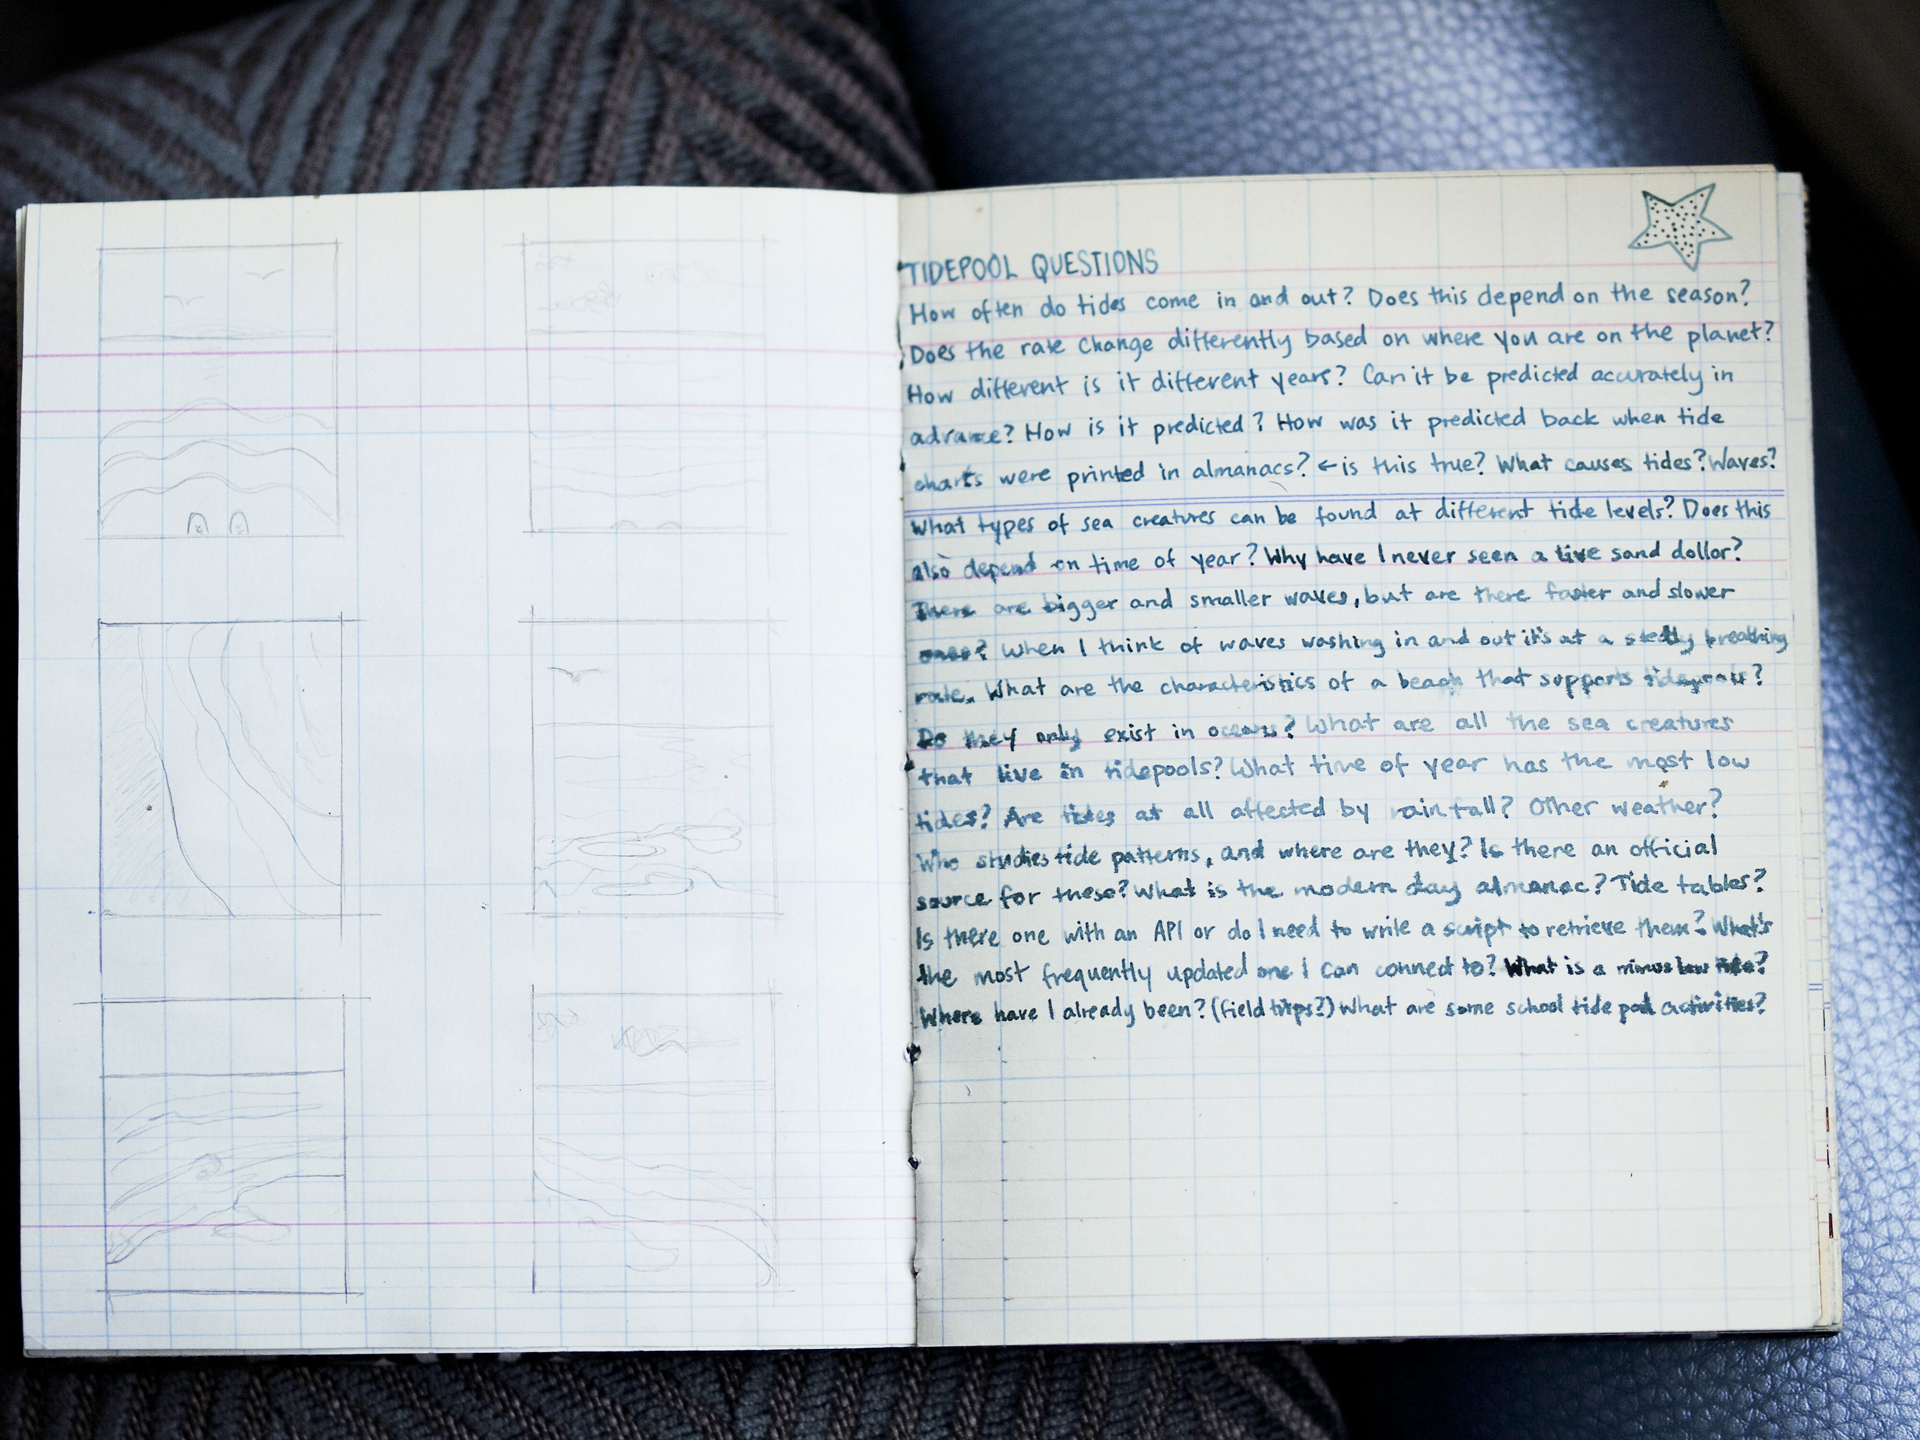 TIDEPOOL QUESTIONS
How often do tides come in and out? Does this depend on the season?
Does the rate change differently based on where you are on the planet?
How different is it different years? Can it be predicted accurately in
advance? How is it predicted? How was it predicted back when tide
charts were printed in almanacs? ← is this true? What causes tides? Waves?
What types of sea creatures can be found at different tide levels? Does this
also depend on time of year? Why have I never seen a live sand dollar?
There are bigger and smaller waves, but are there faster and slower
ones? When I think of waves washing in and out it's at a steady breathing
rate. What are the characteristics of a beach that supports tidepools?
Do they only exist in oceans? What are all the sea creatures
that live in tidepools? What time of year has the most low
tides? Are tides at all affected by rainfall? Other weather?
Who studies tide patterns, and where are they? Is there an official
source for these? What is the modern day almanac? Tide tables?
Is there one with an API or do I need to write a script to retrieve them? What's
the most frequently updated one I can connect to? What is a minus low tide?
Where have I already been? (field trips?) What are some school tide pool activities?